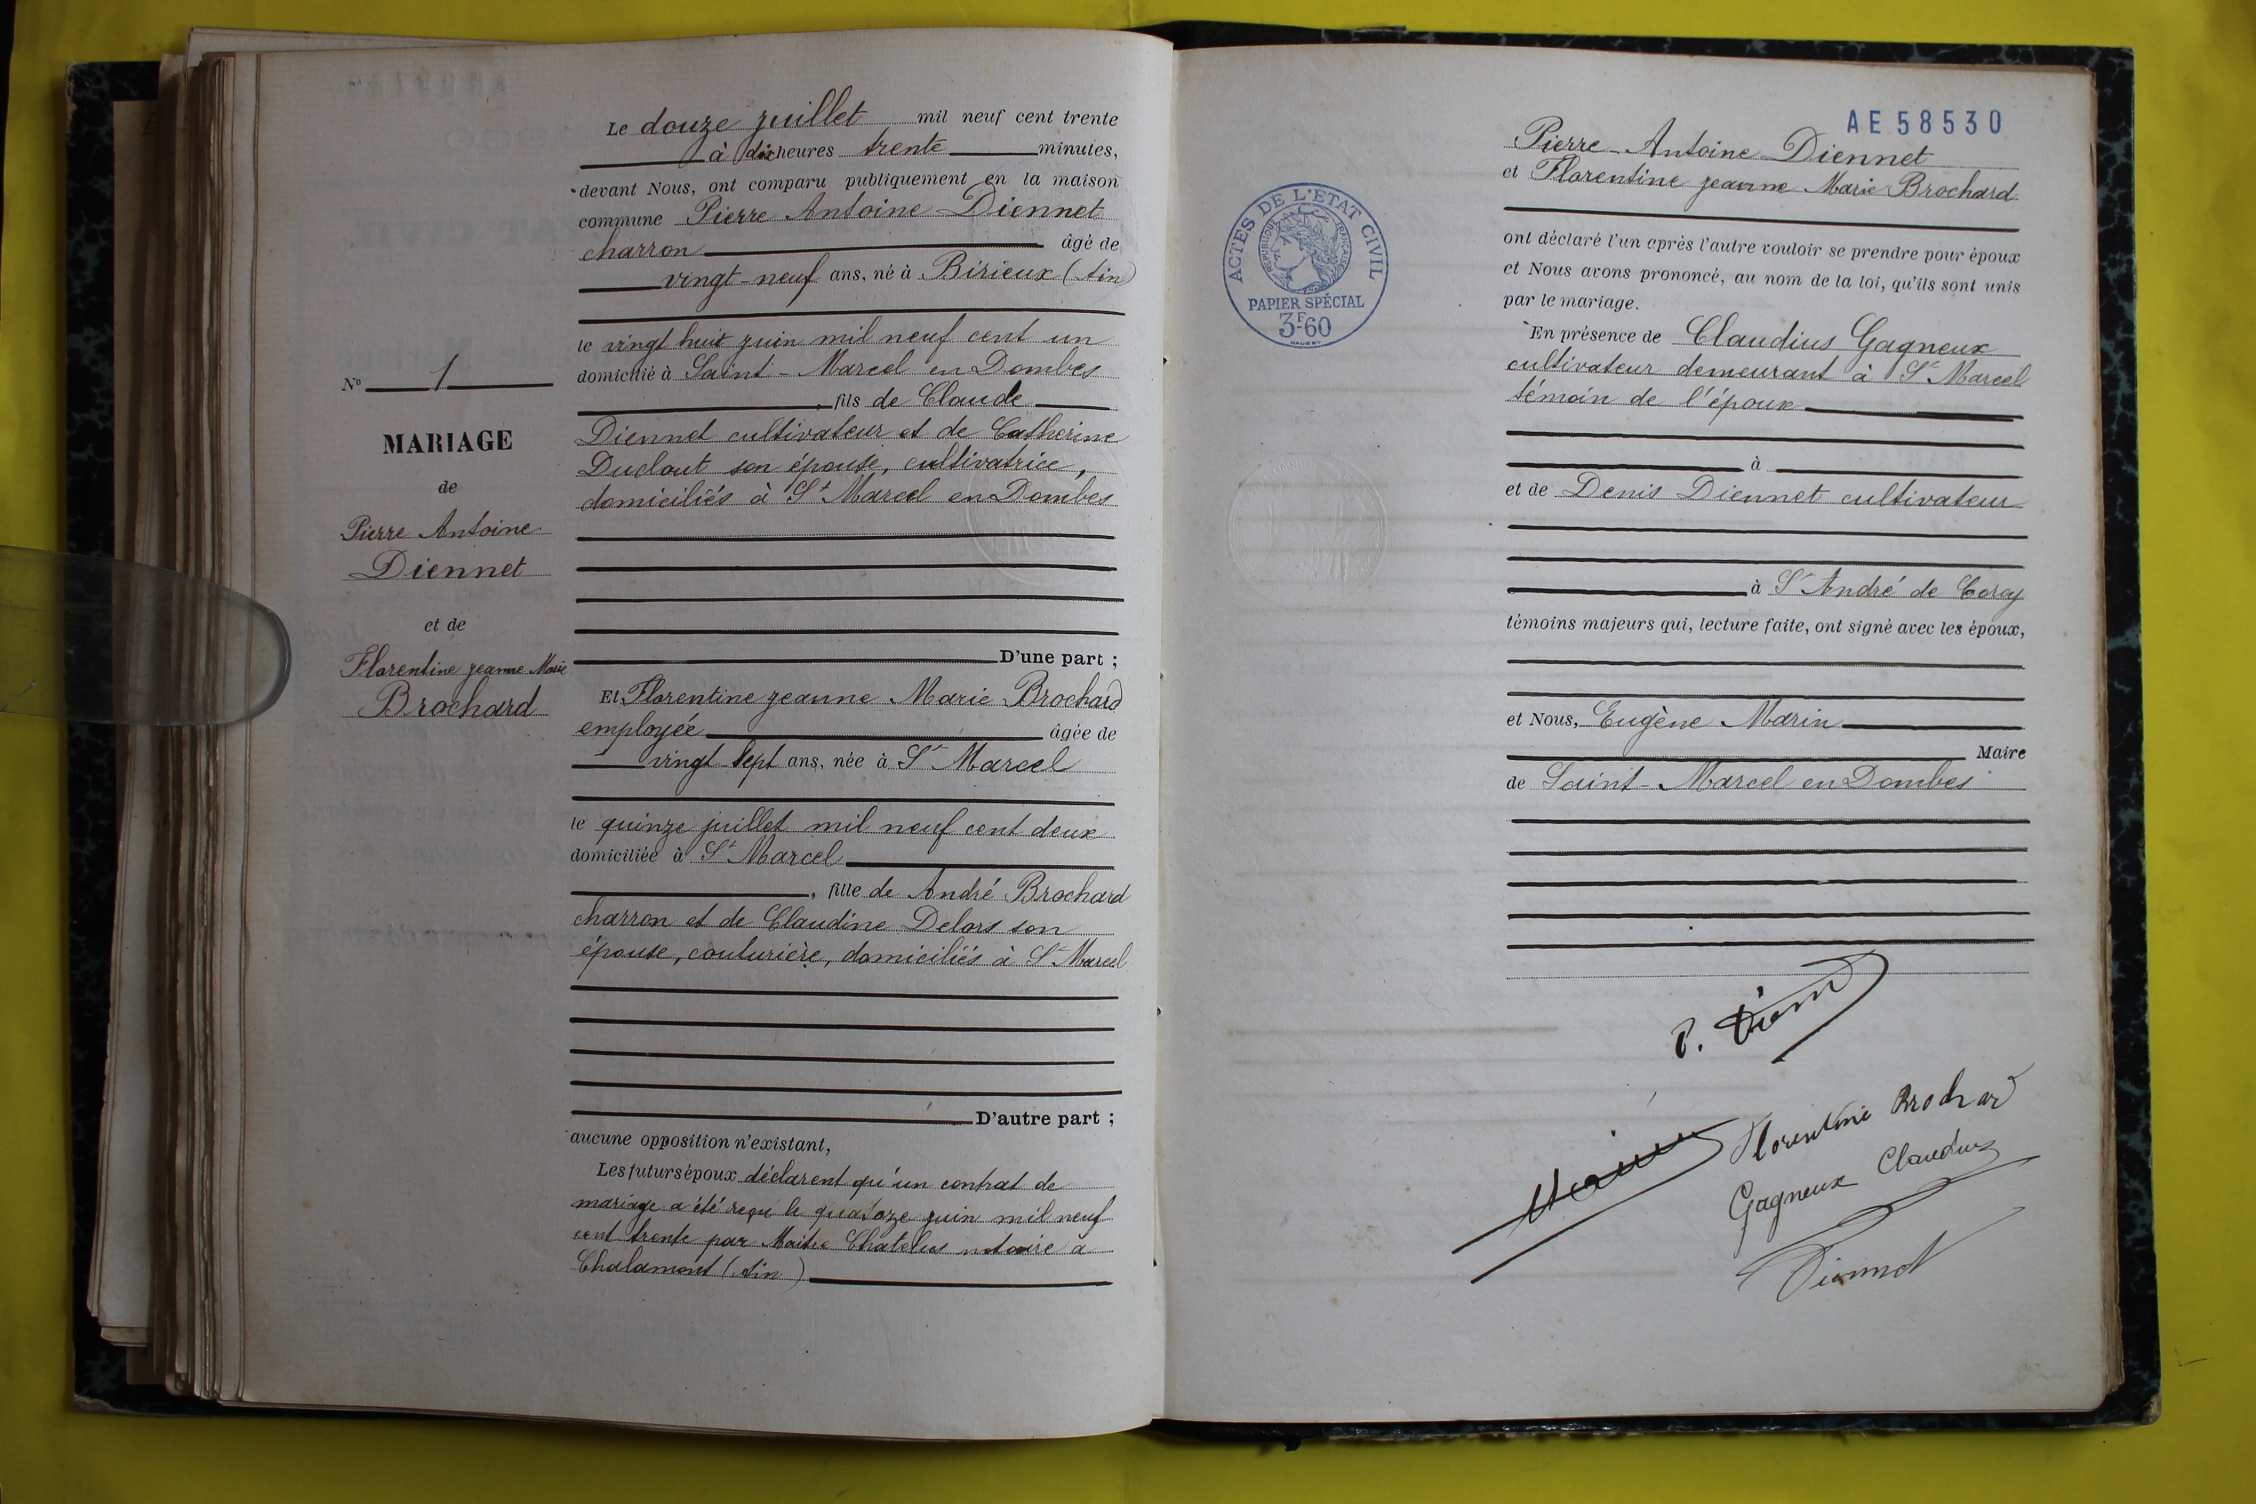 Le douze juillet mil neuf cent trente
à dix heures trente minutes,
devant Nous, ont comparu publiquement en la maison
commune Pierre Antoine Diennet
charron âgé de
vingt-neuf ans, né à Birieux (Ain)
le vingt huit juin mil neuf cent un
domicilié à Saint-Marcel en Dombes
, fils de Claude
Diennet cultivateur et de Catherine
Duclout son épouse, cultivatrice,
domiciliés à St Marcel en Dombes
D'une part ;
Et Florentine jeanne Marie Brochard
employée âgée de
vingt-sept ans, née à St Marcel
le quinze juillet mil neuf cent deux
domiciliée à St Marcel
, fille de André Brochard
charron et de Claudine Delors son
épouse, couturière, domiciliés à St Marcel
D'autre part ;
aucune opposition n'existant,
Les futurs époux déclarent qu'un contrat de
mariage a été reçu le quatorze juin mil neuf
cent trente par Maître Chatelus notaire à
Chalamont (Ain)
No 1
MARIAGE
de
Pierre Antoine
Diennet
et de
Florentine jeanne Marie
Brochard
AE 58530
Pierre-Antoine Diennet
et Florentine jeanne Marie Brochard
ont déclaré l'un après l'autre vouloir se prendre pour époux
et Nous avons prononcé, au nom de la loi, qu'ils sont unis
par le mariage.
En présence de Claudius Gagneux
cultivateur demeurant à St Marcel
témoin de l'époux
à
et de Denis Diennet cultivateur
à St André de Corcy
témoins majeurs qui, lecture faite, ont signé avec les époux,
et Nous, Eugène Marin
Maire
de Saint-Marcel en Dombes
ACTES DE L'ETAT CIVIL
REPUBLIQUE FRANÇAISE
PAPIER SPÉCIAL
3F60
P. Diennet
Florentine Brochard
Marin
Gagneux Claudius
Diennet